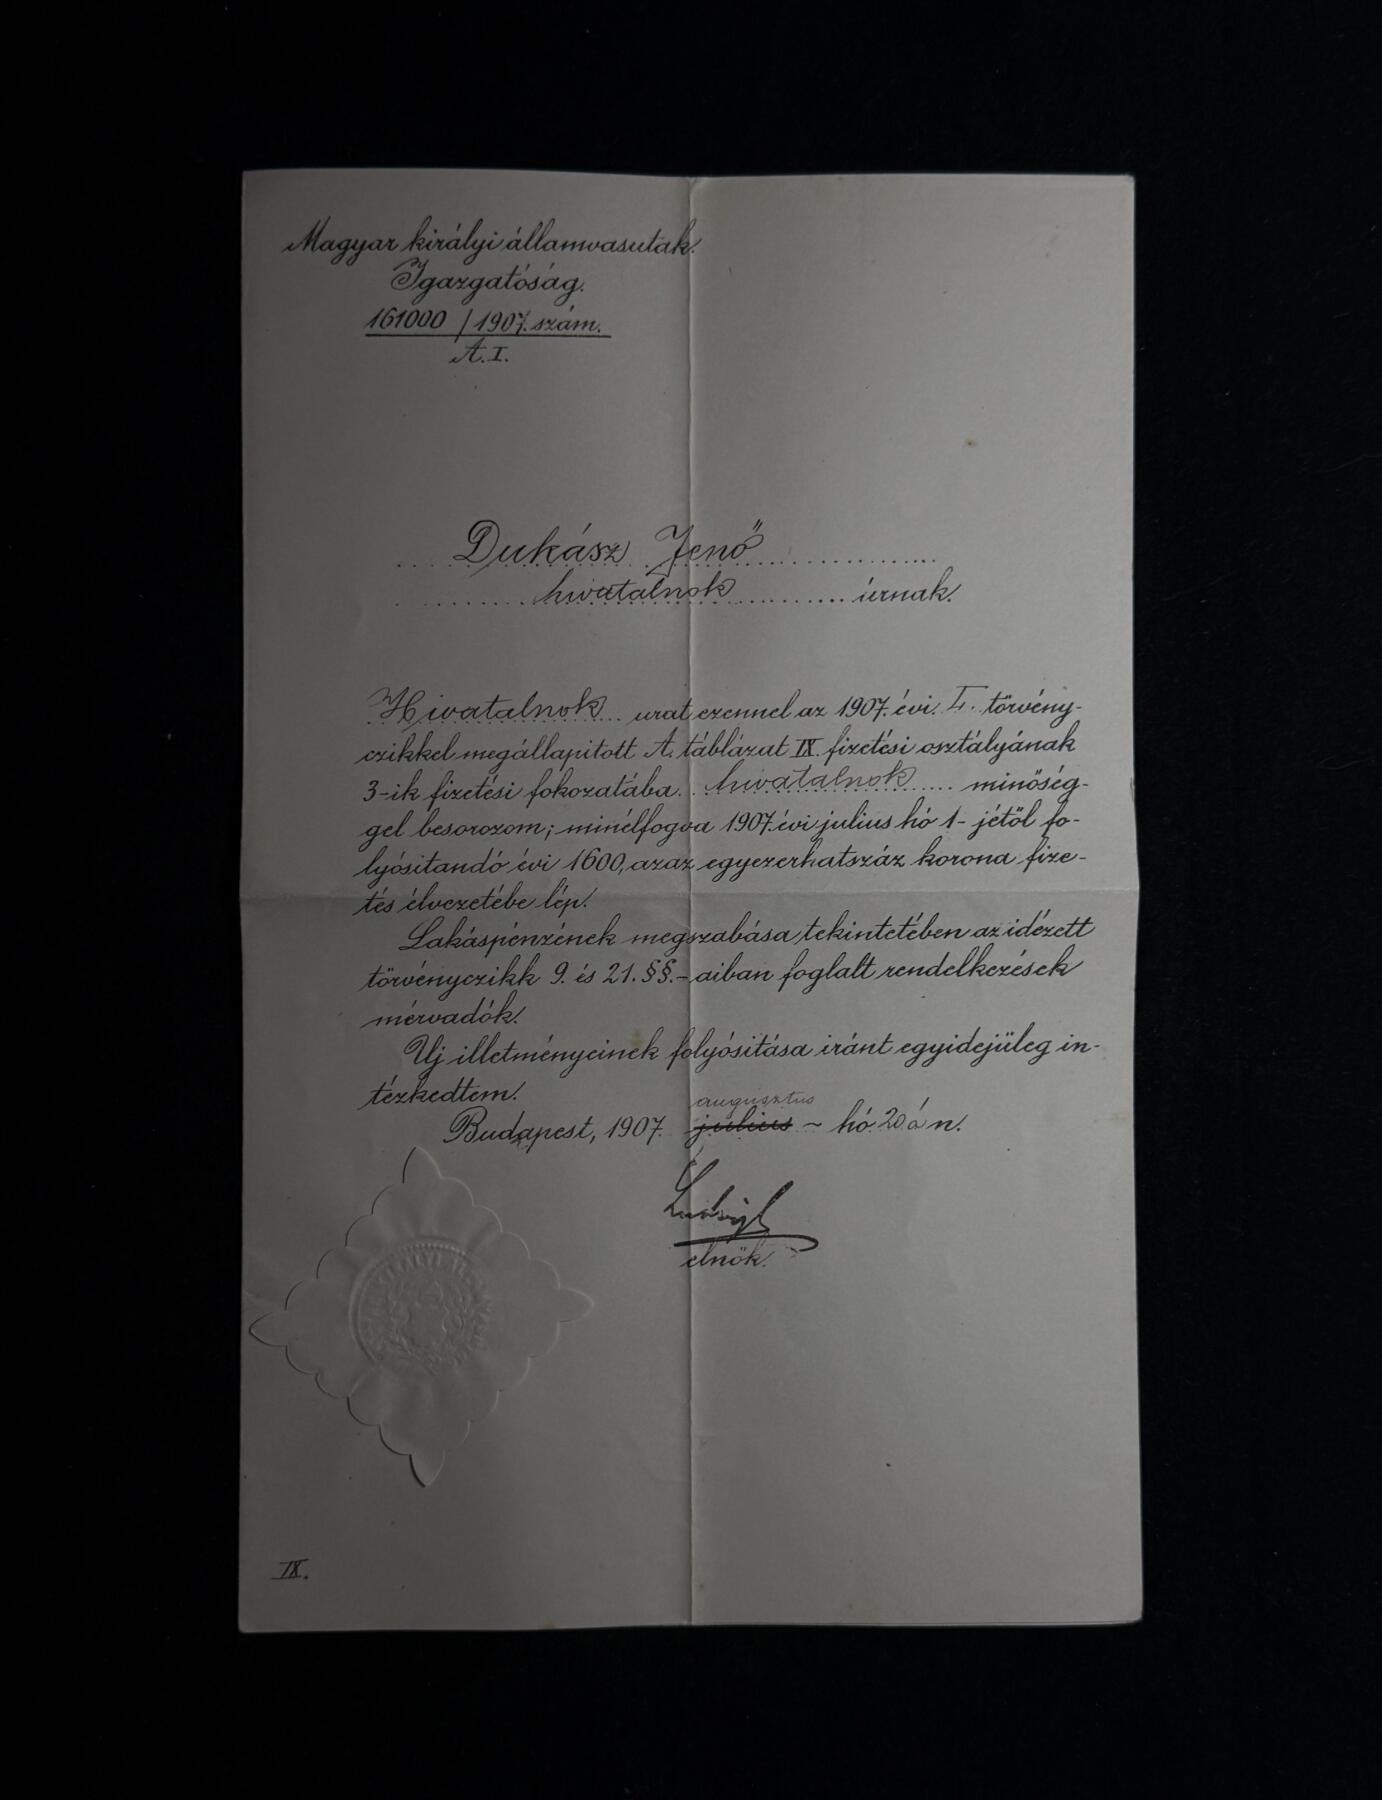 Magyar királyi államvasutak.
Igazgatóság.
161000 / 1907. szám.
A. I.
Dukász Jenő
hivatalnok úrnak.
Hivatalnok urat ezennel az 1907. évi I. törvény-
czikkel megállapitott A. táblázat IX. fizetési osztályának
3-ik fizetési fokozatába hivatalnok minőség-
gel besorozom; minélfogva 1907. évi julius hó 1-jétől fo-
lyósitandó évi 1600, azaz egyezerhatszáz korona fize-
tés élvezetébe lép.
Lakáspénzének megszabása tekintetében az idézett
törvényczikk 9. és 21. §§.-aiban foglalt rendelkezések
mérvadók.
Uj illetményeinek folyósitása iránt egyidejüleg in-
tézkedtem.
augusztus
Budapest, 1907. julius ~ hó 20án.
Ludvigh
elnök.
IX.